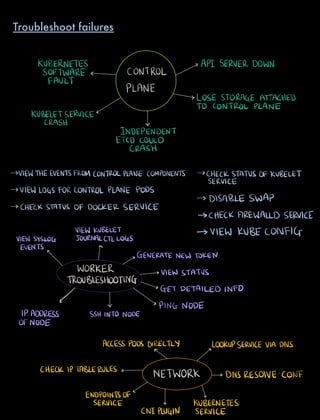 Troubleshoot failures
KUBERNETES
SOFTWARE
FAULT
CONTROL
PLANE
API SERVER DOWN
LOSE STORAGE ATTACHED
TO CONTROL PLANE
KUBELET SERVICE
CRASH
INDEPENDENT
ETCD COULD
CRASH
→VIEW THE EVENTS FROM CONTROL PLANE COMPONENTS
→VIEW LOGS FOR CONTROL PLANE PODS
→CHECK STATUS OF DOCKER SERVICE
→CHECK STATUS OF KUBELET
SERVICE
→DISABLE SWAP
→CHECK FIREWALLD SERVICE
→VIEW KUBE CONFIG
VIEW SYSLOG
EVENTS
VIEW KUBELET
JOURNALCTL LOGS
GENERATE NEW TOKEN
WORKER
TROUBLESHOOTING
VIEW STATUS
GET DETAILED INFO
PING NODE
IP ADDRESS
OF NODE
SSH INTO NODE
ACCESS PODS DIRECTLY
LOOKUP SERVICE VIA DNS
CHECK IP TABLE RULES
NETWORK
DNS RESOLVE CONF
ENDPOINTS OF
SERVICE
CNI PLUGIN
KUBERNETES
SERVICE